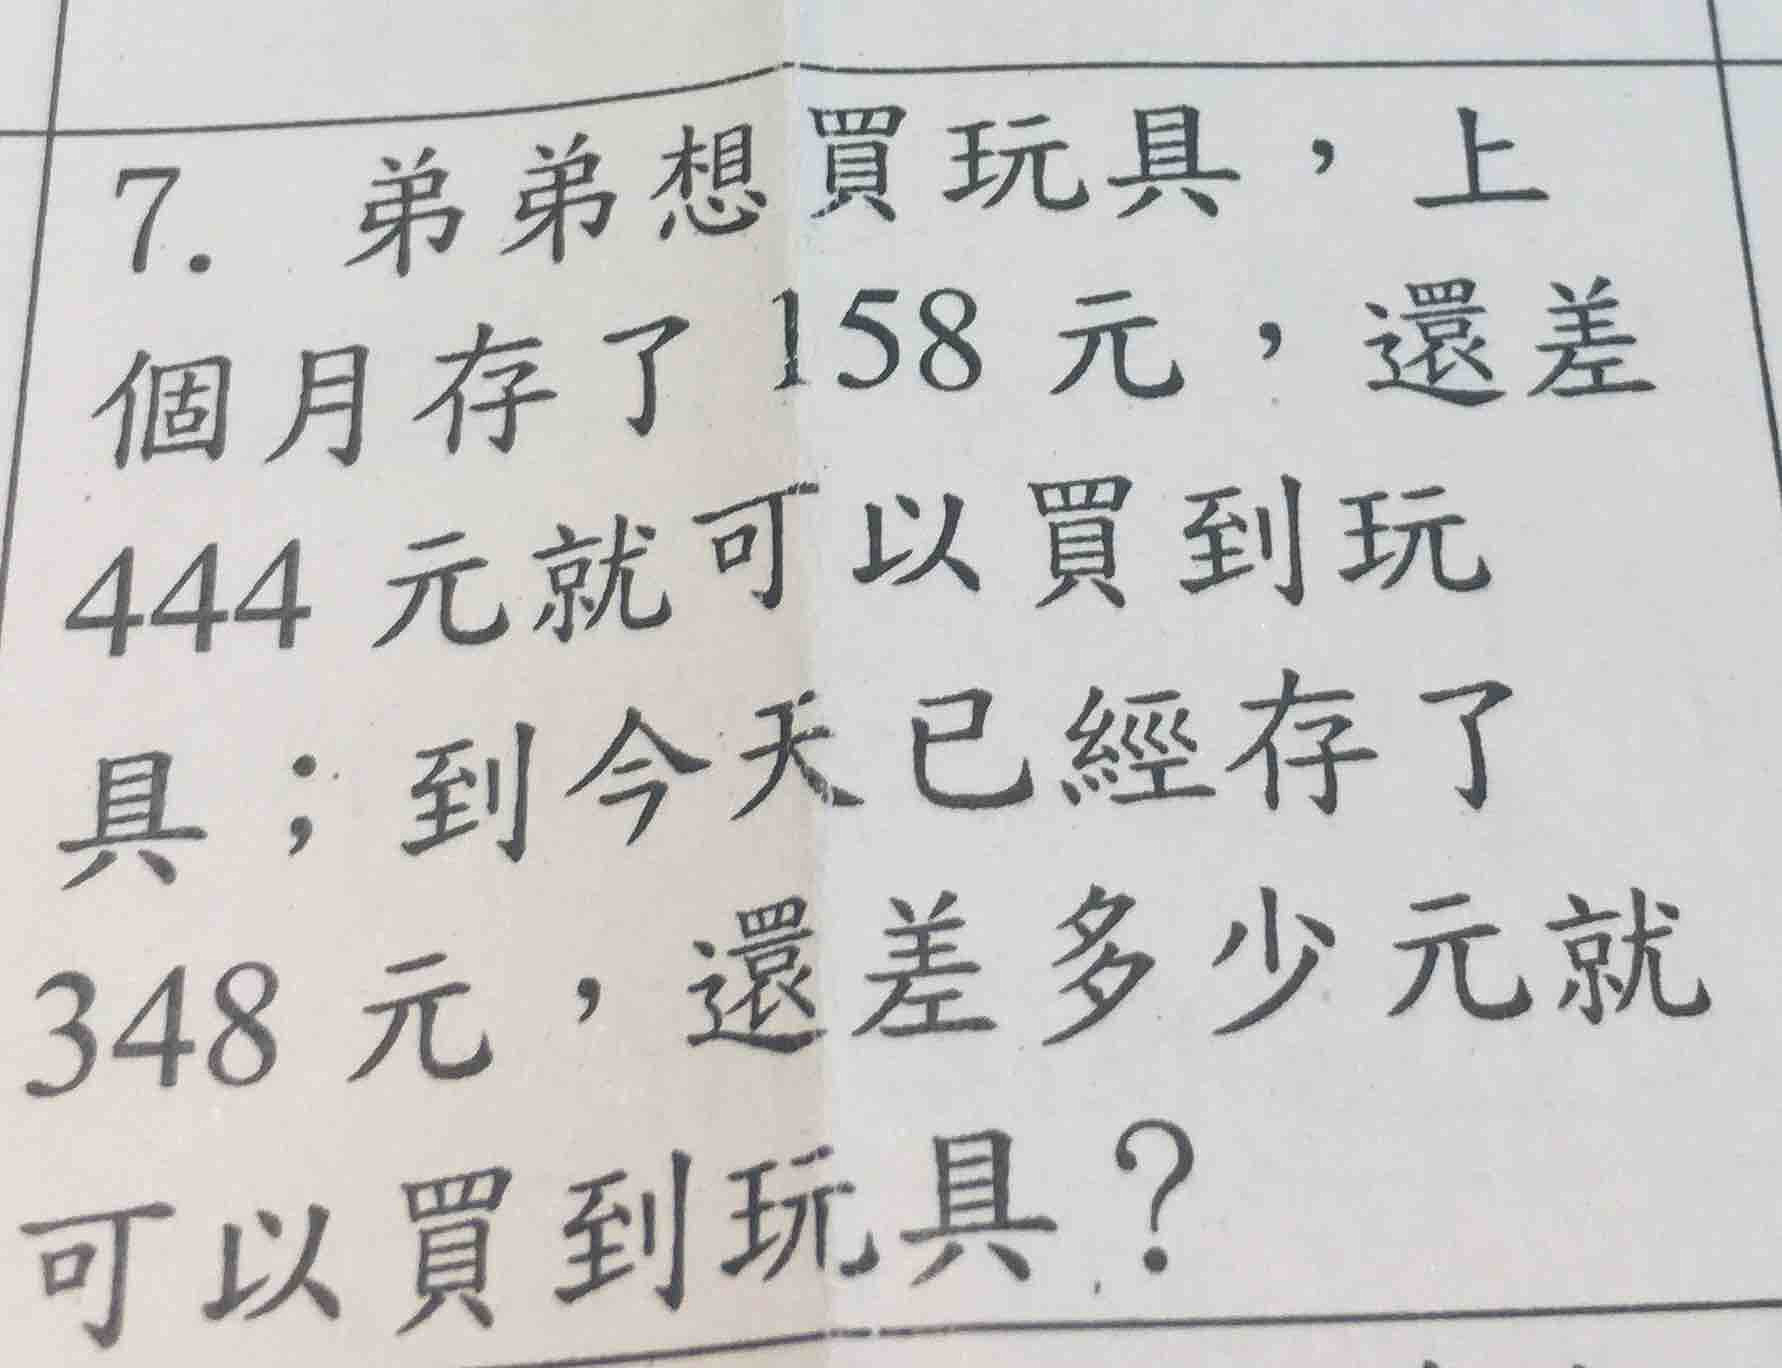 7. 弟弟想買玩具，上
個月存了 158 元，還差
444 元就可以買到玩
具；到今天已經存了
348 元，還差多少元就
可以買到玩具？